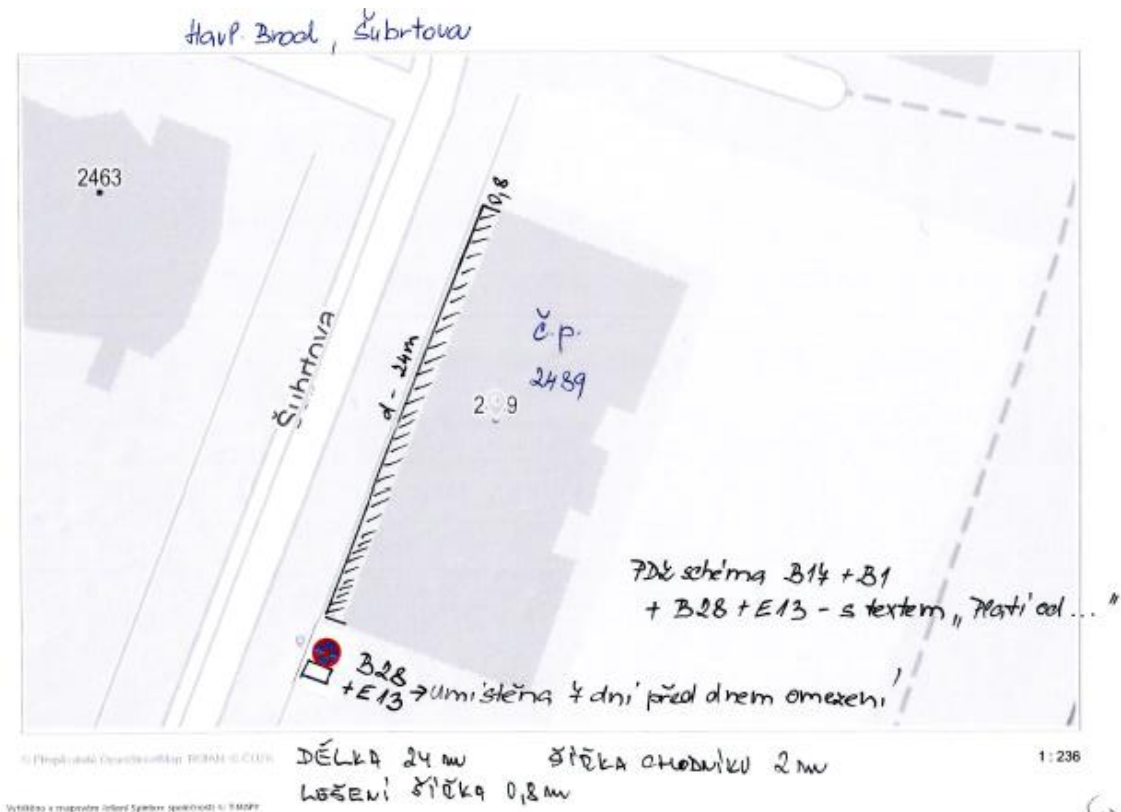 Havl. Brod, Šubrtova
2463
0,8
Šubrtova
d - 24m
č.p.
2489
PDZ schéma B17 + B1
+ B28 + E13 - s textem „Platí od ..."
B28
+ E13 → umístěna 7 dní před dnem omezení
DÉLKA 24 m ŠÍŘKA CHODNÍKU 2 m
1 : 236
LEŠENÍ ŠÍŘKA 0,8 m